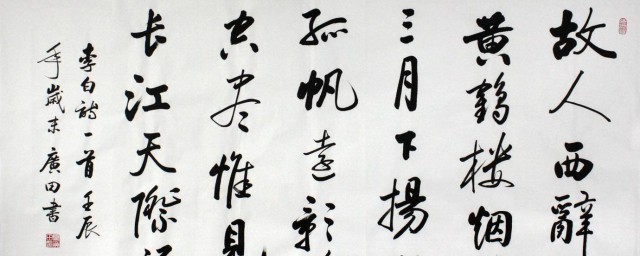 故人西辭
黄鶴楼烟
三月下揚
孤帆遠影
空尽惟見
长江天際
李白詩一首 壬辰
年歲末 廣田書